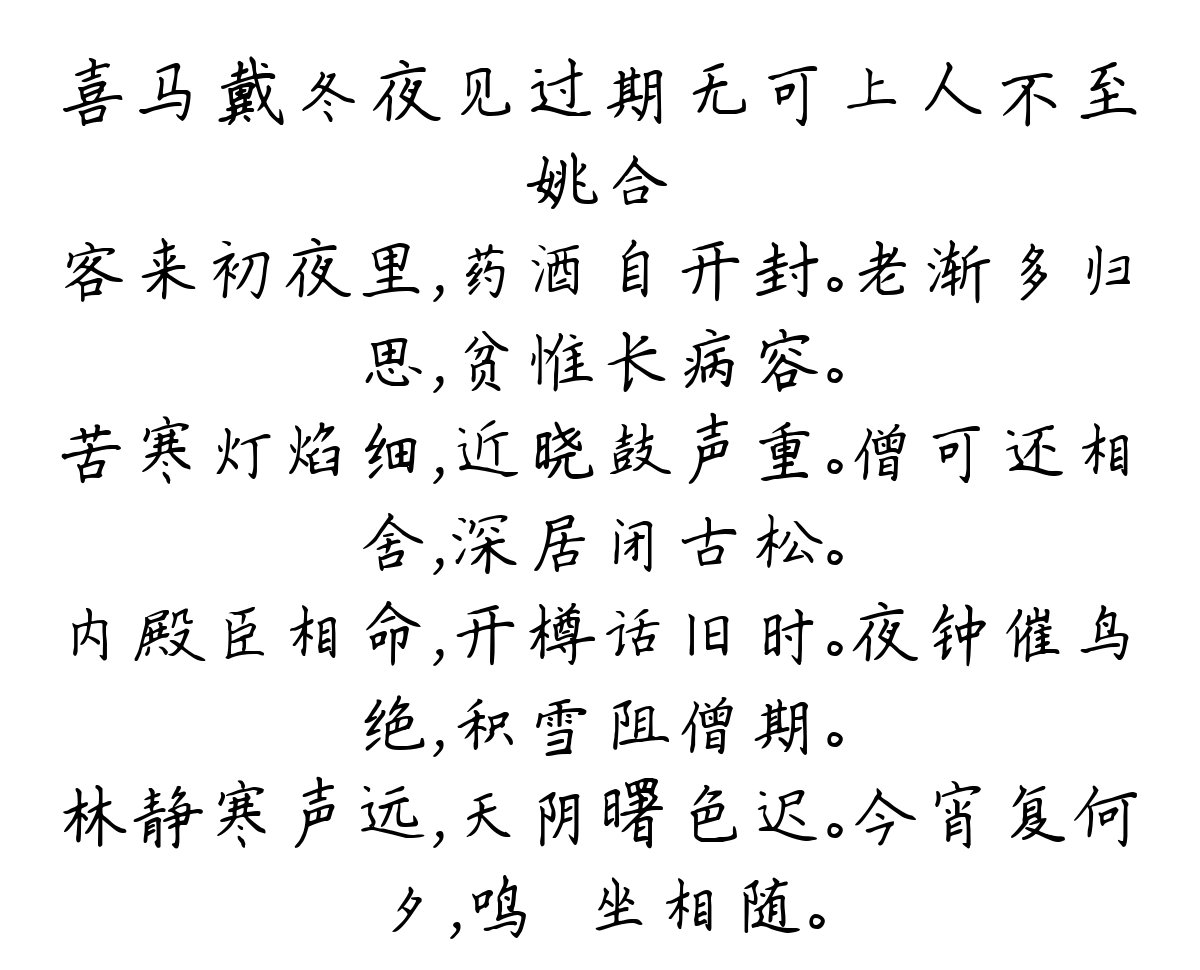 喜马戴冬夜见过期无可上人不至
姚合
客来初夜里,药酒自开封。老渐多归
思,贫惟长病容。
苦寒灯焰细,近晓鼓声重。僧可还相
舍,深居闭古松。
内殿臣相命,开樽话旧时。夜钟催鸟
绝,积雪阻僧期。
林静寒声远,天阴曙色迟。今宵复何
夕,鸣 坐相随。